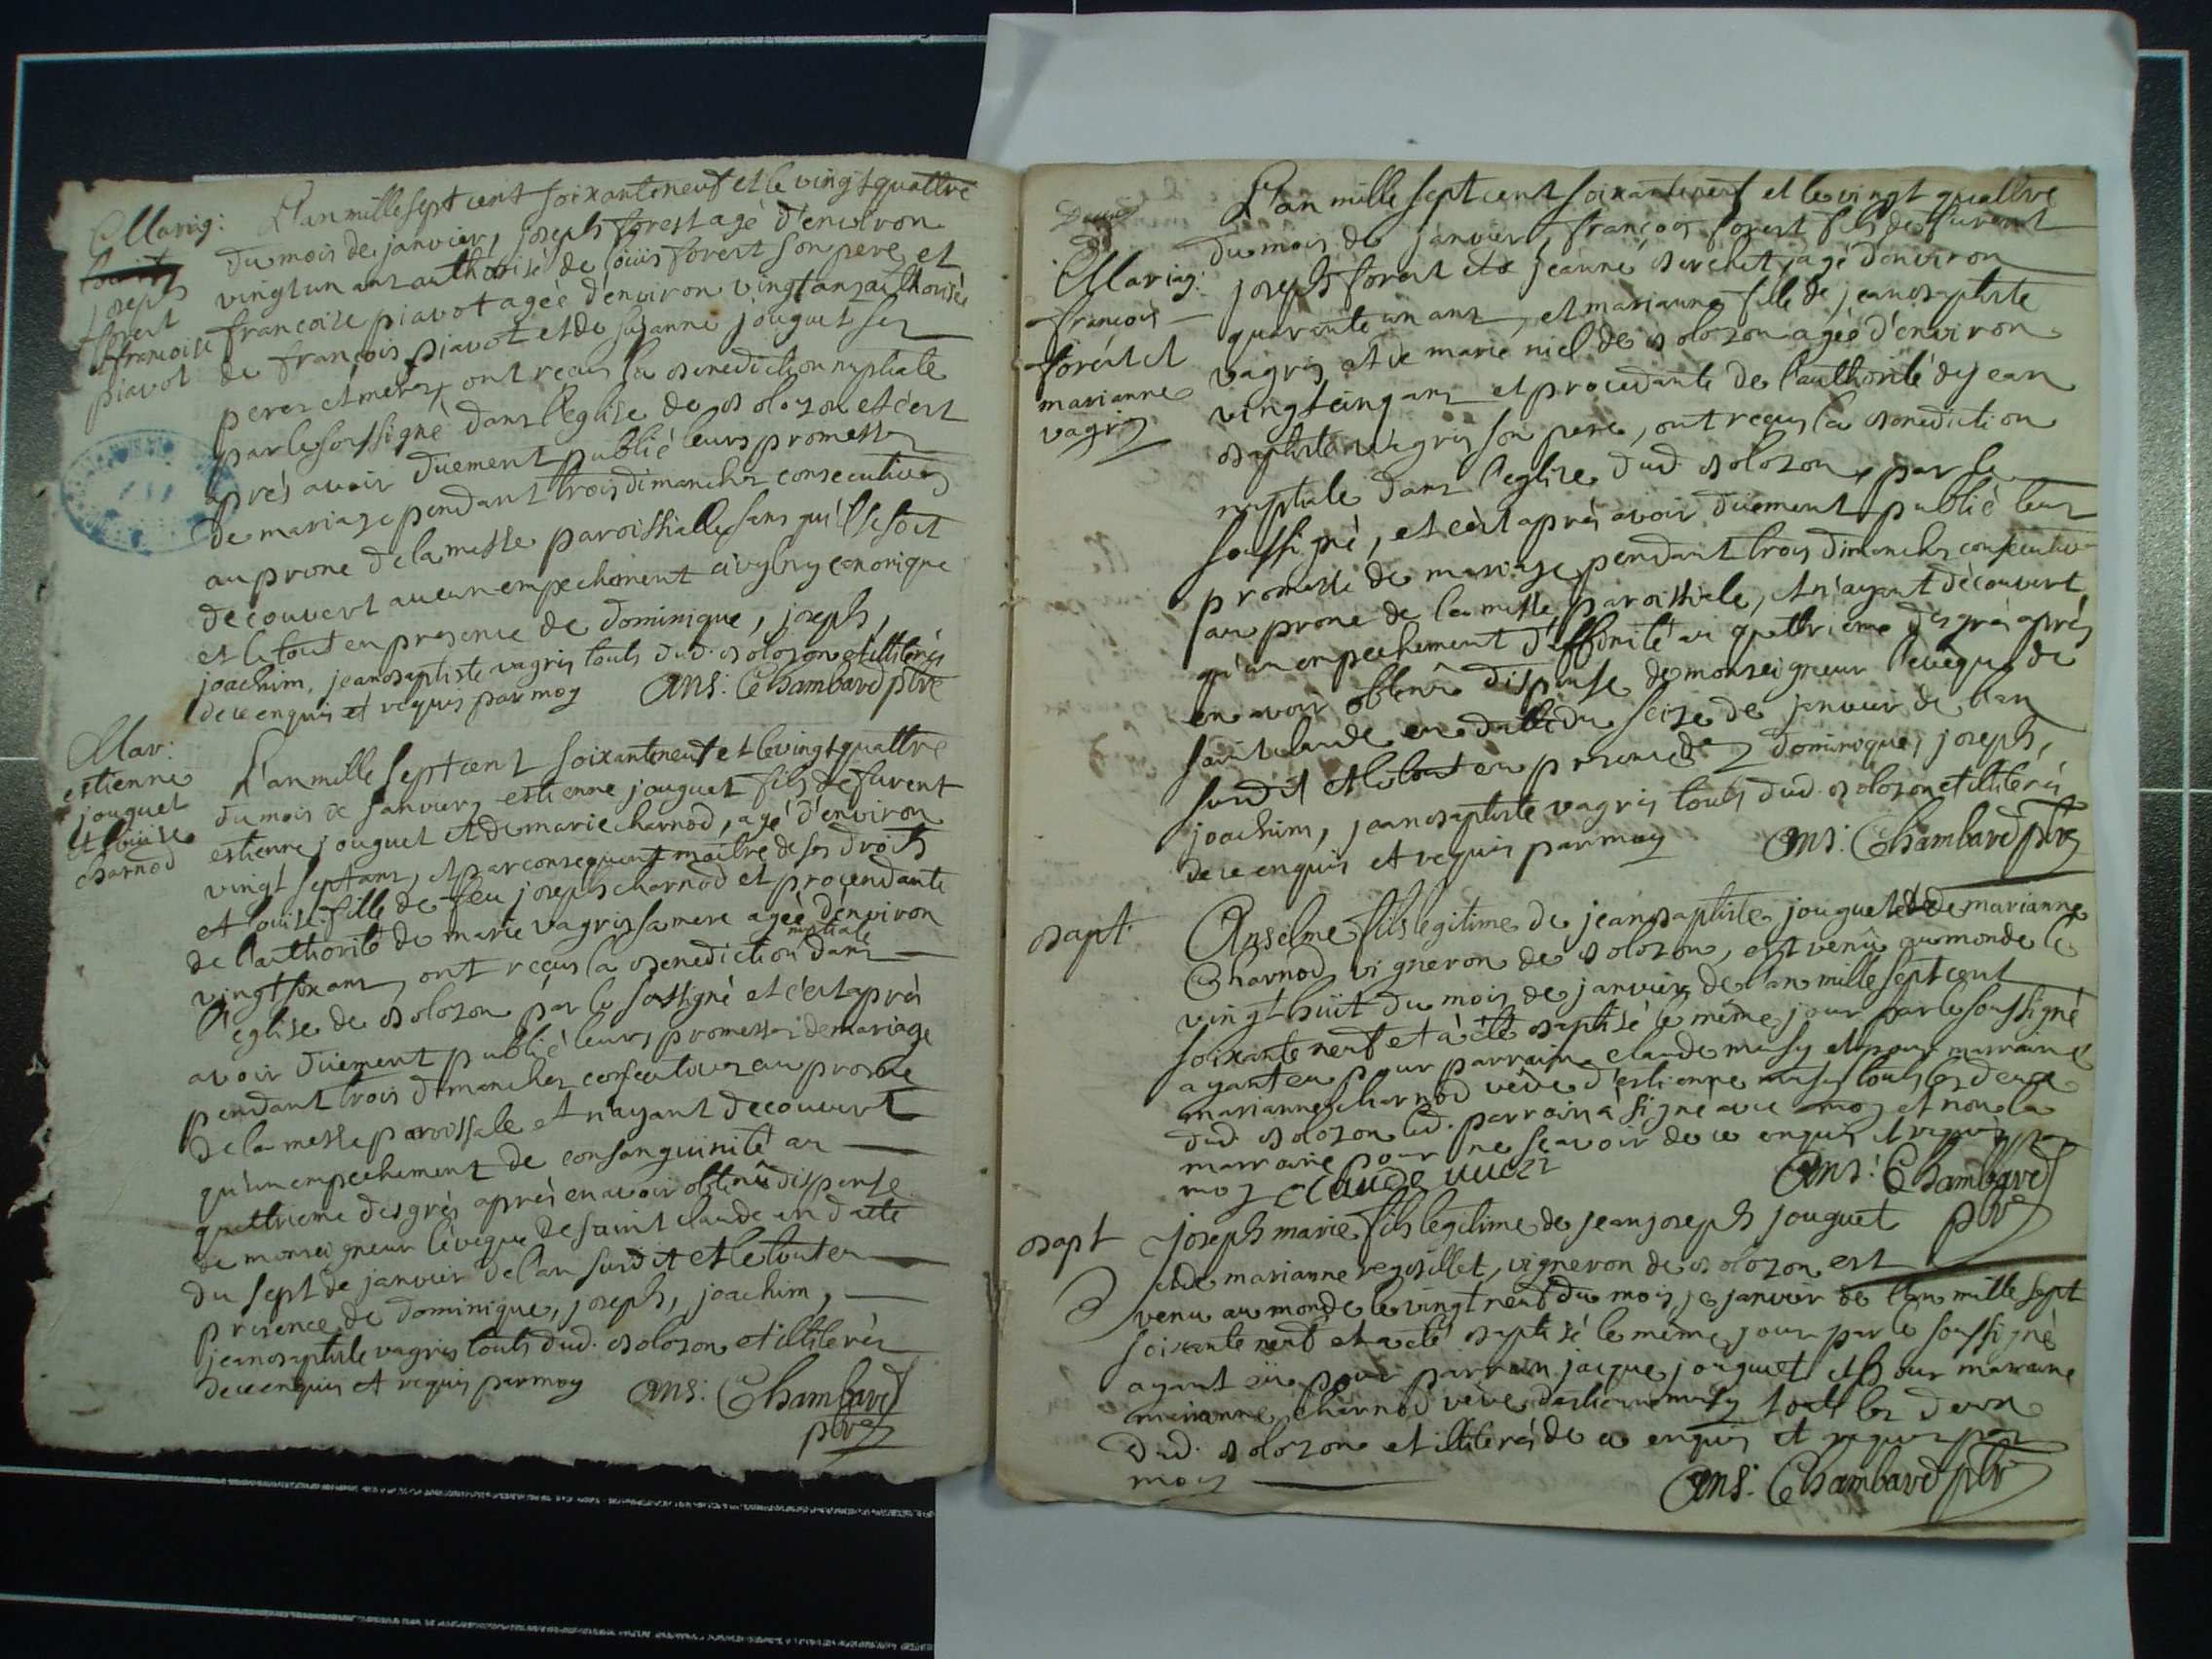 Mariag:
joseph
forest
françoise
piavot
L'an mille sept cent soixante neuf et le vingt quattre
du mois de janvier, joseph forest agé d'environ
vingt un ans authorisé de loüis forest son pere et
francoise piavot agée d'environ vingt ans authorisée
de françois piavot et de susanne jouguet ses
peres et meres, ont reçus la benediction nuptiale
par le soussigné dans l'eglise de bolozon et c'est
aprés avoir düement publié leurs promesses
de mariage pendant trois dimanches consecutives
au prone de la messe paroissialle sans qu'il se soit
decouvert aucun empechement civyl ny canonique
et le tout en presence de dominique, joseph,
joachim, jean baptiste vagris touts dud. bolozon et illiterés
de ce enquis et requis par moy ans: Chambard ptre
Mar:
estienne
jouguet
et loüise
charnod
L'an mille sept cent soixante neuf et le vingt quattre
du mois de janvier, estienne jouguet fils de furent
estienne jouguet et de marie charnod, agé d'environ
vingt sept ans, et par consequent maitre de ses droits
et loüise fille de feu joseph charnod et procendante
de l'authorité de marie vagris sa mere agée d'environ
vingt six ans, ont reçus la benediction nuptiale dans
l'eglise de bolozon par le sossigné et c'est aprés
avoir düement publié leurs promesses de mariage
pendant trois dimanches consecutives au prosne
de la messe paroissale et n'ayant decouvert
qu'un empechement de consanguinité au
quattrieme desgrés aprés en avoir obtenû dispense
de monseigneur l'eveque de saint claude en datte
du sept de janvier de l'an susdit et le tout en
presence de dominique, joseph, joachim,
jean baptiste vagris touts dud. bolozon et illiterés
de ce enquis et requis par moy ans: Chambard
ptre
Mariag:
françois
forest et
marianne
vagris
L'an mille sept cent soixante neuf et le vingt quattre
du mois de janvier, françois forest fils de furent
joseph forest et de jeanne berchet, agé d'environ
quarante un ans, et marianne fille de jean baptiste
vagris et de marie niel de bolozon agée d'environ
vingt cinq ans et procedante de l'authorité de jean
baptiste vagris son pere, ont reçus la benediction
nuptiale dans l'eglise dud. bolozon, par le
soussigné, et c'est aprés avoir düement publié leur
promesse de mariage pendant trois dimanches consecutives
au prone de la messe paroissiale, et n'ayant découvert
qu'un empechement d'affinité au quattrieme desgrés aprés
en avoir obtenû dispense de monseigneur l'evêque de
saint claude en datte du seize de janvier de l'an
susdit et le tout en presence de dominique, joseph,
joachim, jean baptiste vagris touts dud. bolozon et illiterés
de ce enquis et requis par moy ans: Chambard ptre
bapt.
Anselme fils legitime de jean baptiste jouguet et de marianne
Charnod, vigneron de bolozon, est venû au monde le
vingt huit du mois de janvier de l'an mille sept cent
soixante neuf et à été baptisé le même jour par le soussigné
ayant eu pour parrain claude musy et pour marraine
marianne charnod veüve d'estienne musy touts les deux
dud. bolozon led. parrain à signé avec moy et non la
marraine pour ne scavoir de ce enquis et requis par
moy claude musi ans: Chambard
ptre
bapt
joseph marie fils legitime de jean joseph jouguet
et de marianne regibillet, vigneron de bolozon est
venu au monde le vingt neuf du mois de janvier de l'an mille sept
soixante neuf et a eté baptisé le même jour par le soussigné
ayant eü pour parrain jacque jouguet et pour marraine
marianne charnod veüve d'estienne musy touts les deux
dud. bolozon et illiterés de ce enquis et requis par
moy
ans: Chambard ptre